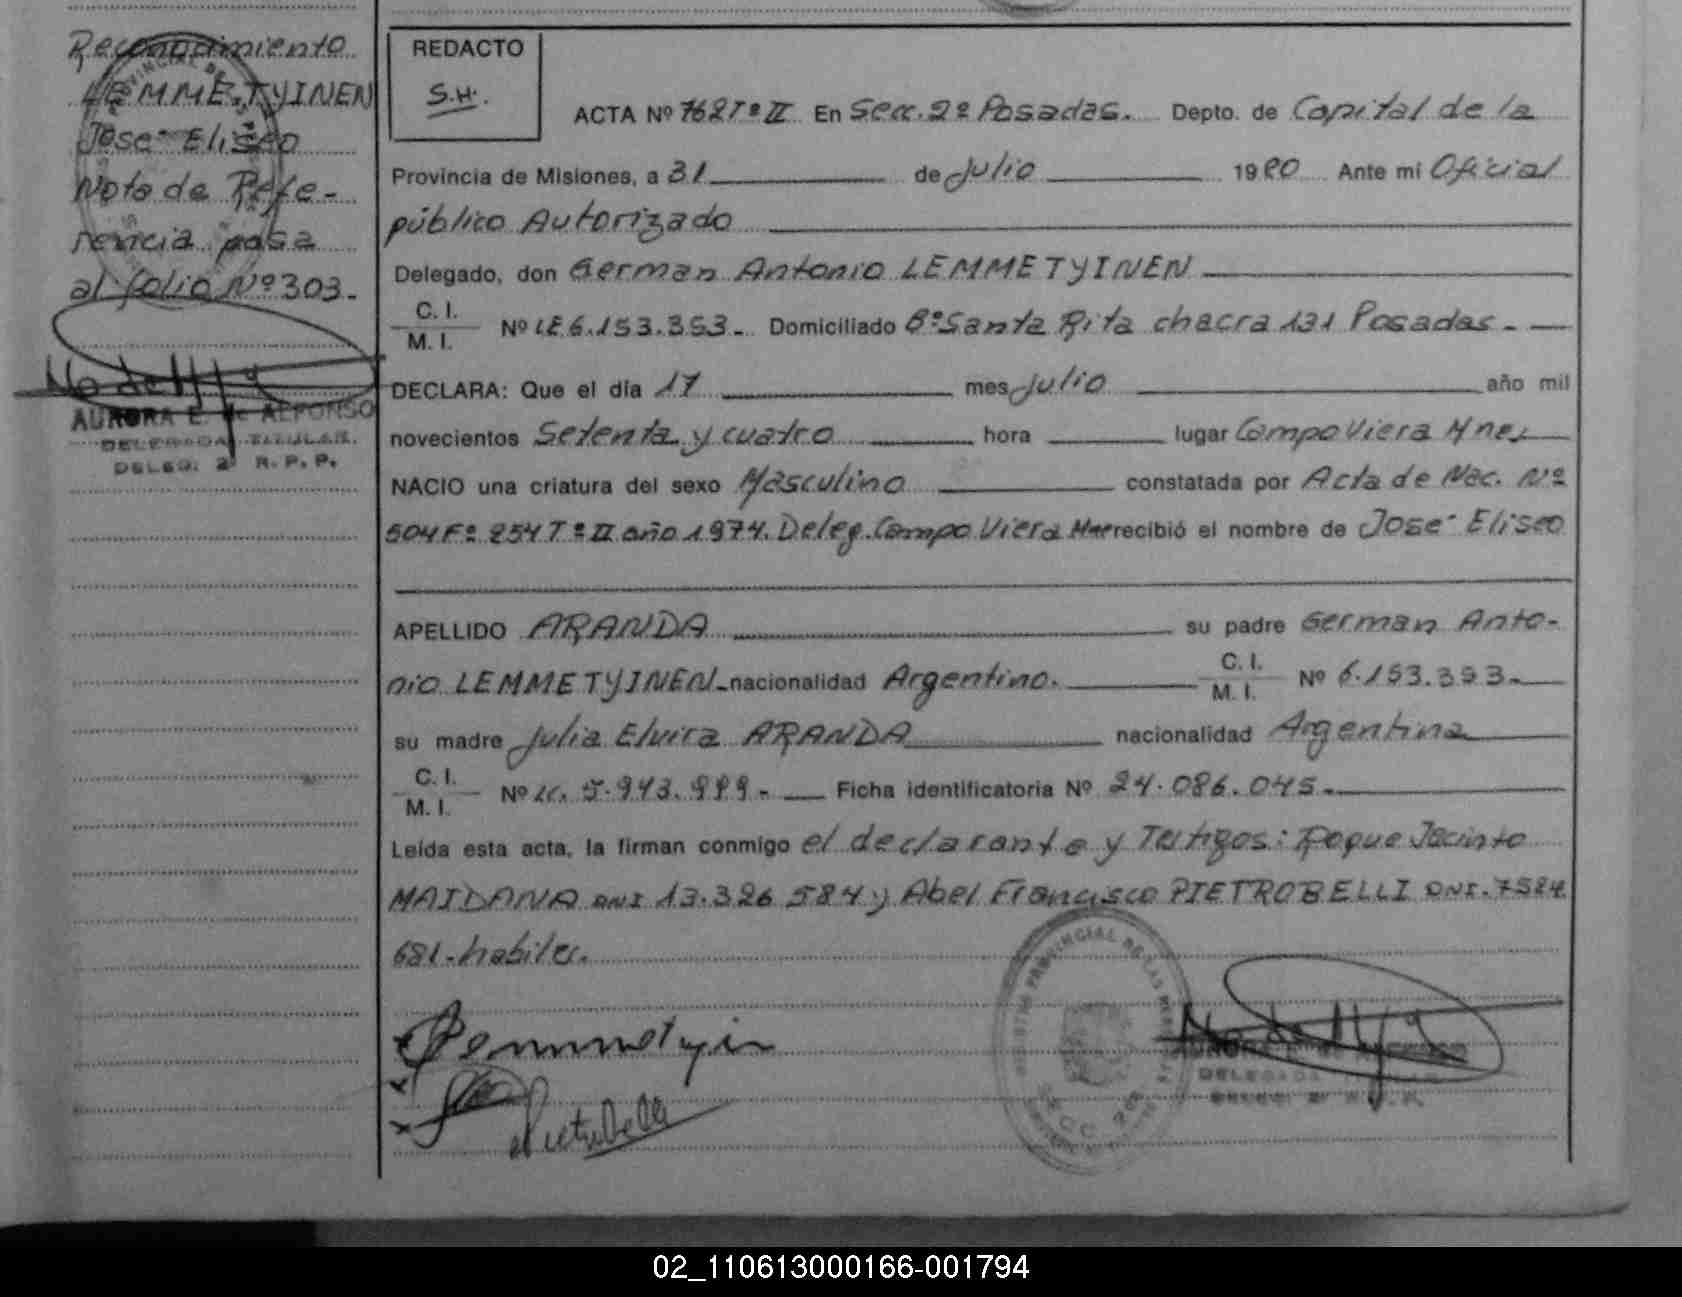 Reconocimiento
LEMMETYINEN
José Eliseo
Nota de Refe-
rencia pasa
al folio Nº 303.-
AURORA E. de ALFONSO
DELEGADA TITULAR
DELEG. 2ª R. P. P.
REDACTO
S.H.
ACTA Nº 762 Tº II En Secc. 2º Posadas. Depto. de Capital de la
Provincia de Misiones, a 31 de Julio 1980 Ante mi Oficial
público Autorizado
Delegado, don German Antonio LEMMETYINEN
C. I.
M. I. Nº LE 6.153.353.- Domiciliado Bº Santa Rita chacra 131 Posadas.-
DECLARA: Que el día 17 mes Julio año mil
novecientos Setenta y cuatro hora lugar Campo Viera Mnes
NACIO una criatura del sexo Masculino constatada por Acta de Nac. Nº
504 Fº 254 Tº II año 1974. Deleg. Campo Viera recibió el nombre de José Eliseo
APELLIDO ARANDA su padre German Anto-
nio LEMMETYINEN nacionalidad Argentino. C. I.
M. I. Nº 6.153.353.-
su madre Julia Elvira ARANDA nacionalidad Argentina
C. I.
M. I. Nº LC. 5.943.999.- Ficha identificatoria Nº 24.086.045.-
Leída esta acta, la firman conmigo el declarante y Testigos: Roque Jacinto
MAIDANA DNI 13.326 584 y Abel Francisco PIETROBELLI DNI. 7584
681.- habiles.
REGISTRO PROVINCIAL DE LAS
SECC. 2da
02_110613000166-001794